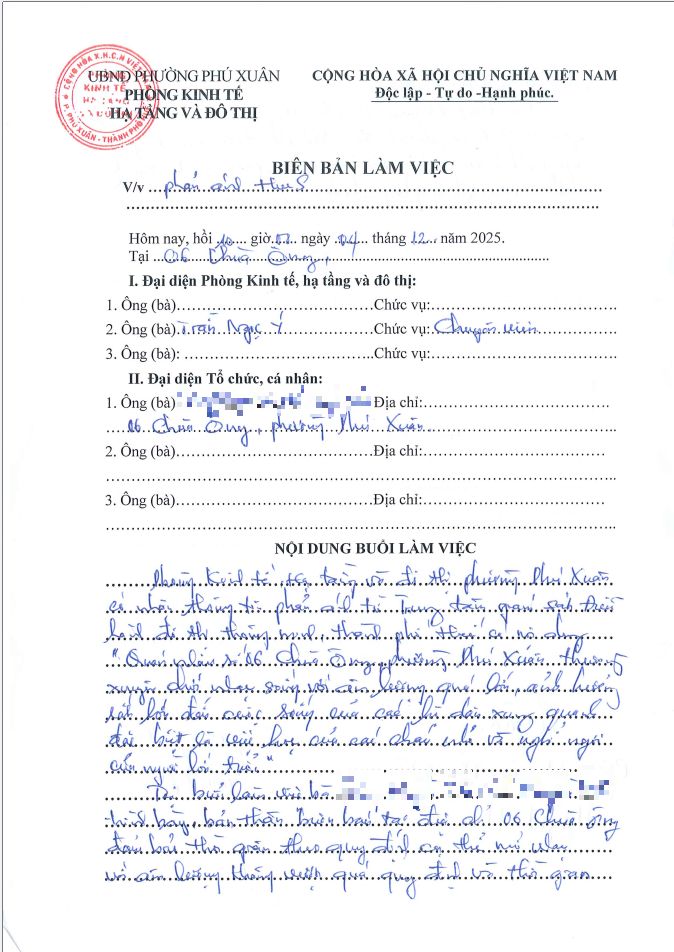 UBND PHƯỜNG PHÚ XUÂN
PHÒNG KINH TẾ
HẠ TẦNG VÀ ĐÔ THỊ
CỘNG HÒA XÃ HỘI CHỦ NGHĨA VIỆT NAM
Độc lập - Tự do -Hạnh phúc.
BIÊN BẢN LÀM VIỆC
V/v phản ánh HueS
Hôm nay, hồi 10 giờ 01 ngày 04 tháng 12 năm 2025.
Tại 06 Chùa Ông,
I. Đại diện Phòng Kinh tế, hạ tầng và đô thị:
1. Ông (bà) Chức vụ:
2. Ông (bà) Trần Ngọc Ý Chức vụ: Chuyên viên
3. Ông (bà): Chức vụ:
II. Đại diện Tổ chức, cá nhân:
1. Ông (bà) Địa chỉ:
06 Chùa Ông, phường Phú Xuân
2. Ông (bà) Địa chỉ:
3. Ông (bà) Địa chỉ:
NỘI DUNG BUỔI LÀM VIỆC
Phòng Kinh tế, Hạ tầng và đô thị phường Phú Xuân
có nhận thông tin phản ánh từ Trung tâm giám sát điều
hành đô thị thông minh, thành phố Huế có nội dung
"Quán nhậu số 06 Chùa Ông, phường Phú Xuân thường
xuyên mở nhạc sống với âm lượng quá lớn, ảnh hưởng
rất lớn đến cuộc sống của các hộ dân xung quanh
đặc biệt là việc học của các cháu nhỏ và nghỉ ngơi
của người lớn tuổi"
Tại buổi làm việc bà
trình bày, bản thân buôn bán tại địa chỉ 06 Chùa Ông
đảm bảo thời gian theo quy định cụ thể mở nhạc
và âm lượng không vượt quá quy định và thời gian